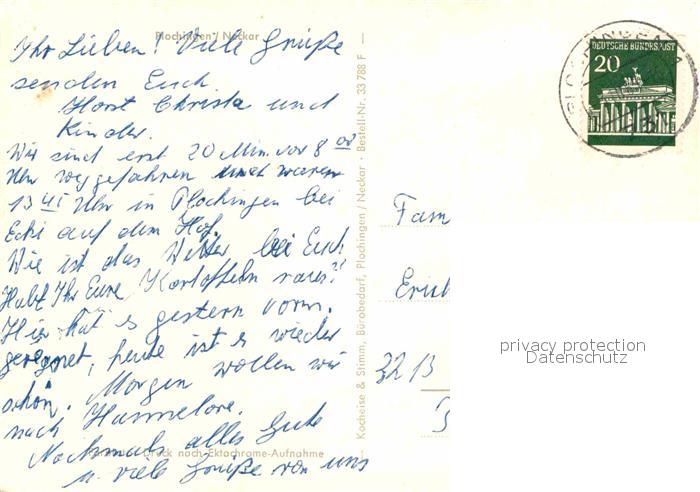 Plochingen / Neckar
Ihr Lieben! Viele Grüße
senden Euch
Horst Christa und
Kinder.
Wir sind erst 20 Min. vor 8 00
Uhr weggefahren und waren
13 45 Uhr in Plochingen bei
Ecki auf dem Hof.
Wie ist das Wetter bei Euch
Habt Ihr Eure Kartoffeln raus?!
Hier hat es gestern vorm.
geregnet, heute ist es wieder
schön. Morgen wollen wir
nach Hannelore.
Nochmals alles Gute
u. viele Grüße von uns
Druck nach Ektachrome-Aufnahme
Kocheise & Stimm, Bürobedarf, Plochingen / Neckar · Bestell-Nr. 33 788 F
DEUTSCHE BUNDESPOST
20
Fam
Erich
3213
privacy protection
Datenschutz